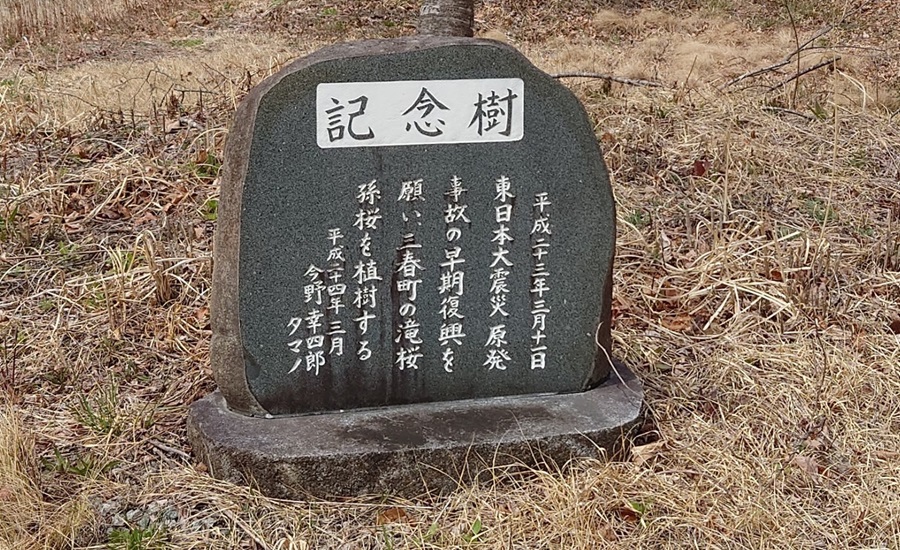 記念樹
平成二十三年三月十一日
東日本大震災 原発
事故の早期復興を
願い三春町の滝桜
孫桜を植樹する
平成二十四年三月
今野幸四郎
タマノ